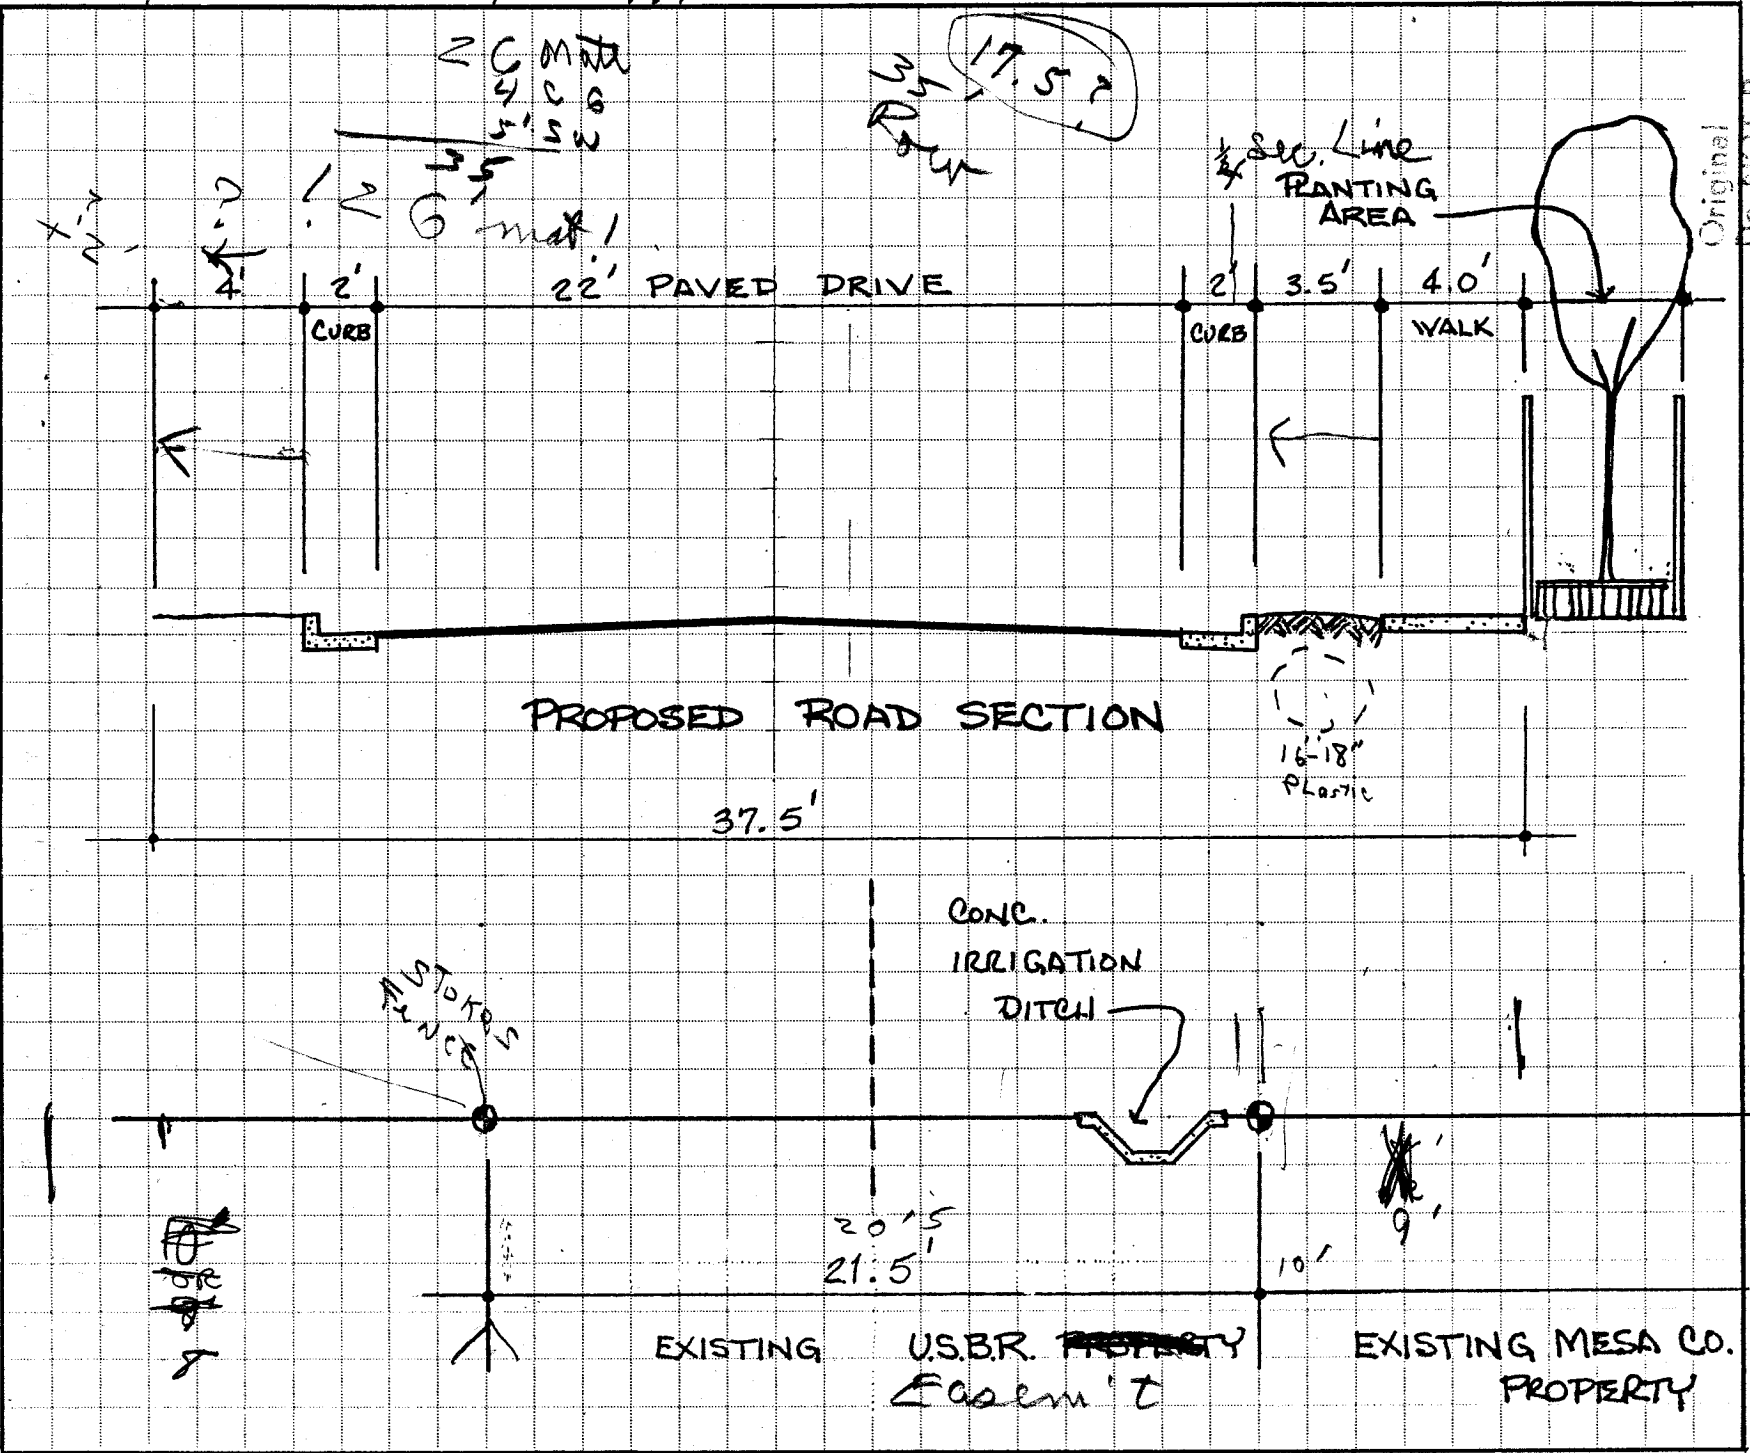 2 6 Matt
4 C G
3' SW
35
17.5 ?
35'
Row
1/4 Sec. Line
PLANTING
AREA
Original
! 26' mat!
4' 2' 22' PAVED DRIVE 2' 3.5' 4.0'
CURB CURB WALK
PROPOSED ROAD SECTION
16-18"
PLastic
37.5'
CONC.
IRRIGATION
DITCH
STOKES
FENCE
9'
20'5
21.5'
10'
8
EXISTING U.S.B.R. PROPERTY
Easem't
EXISTING MESA CO.
PROPERTY